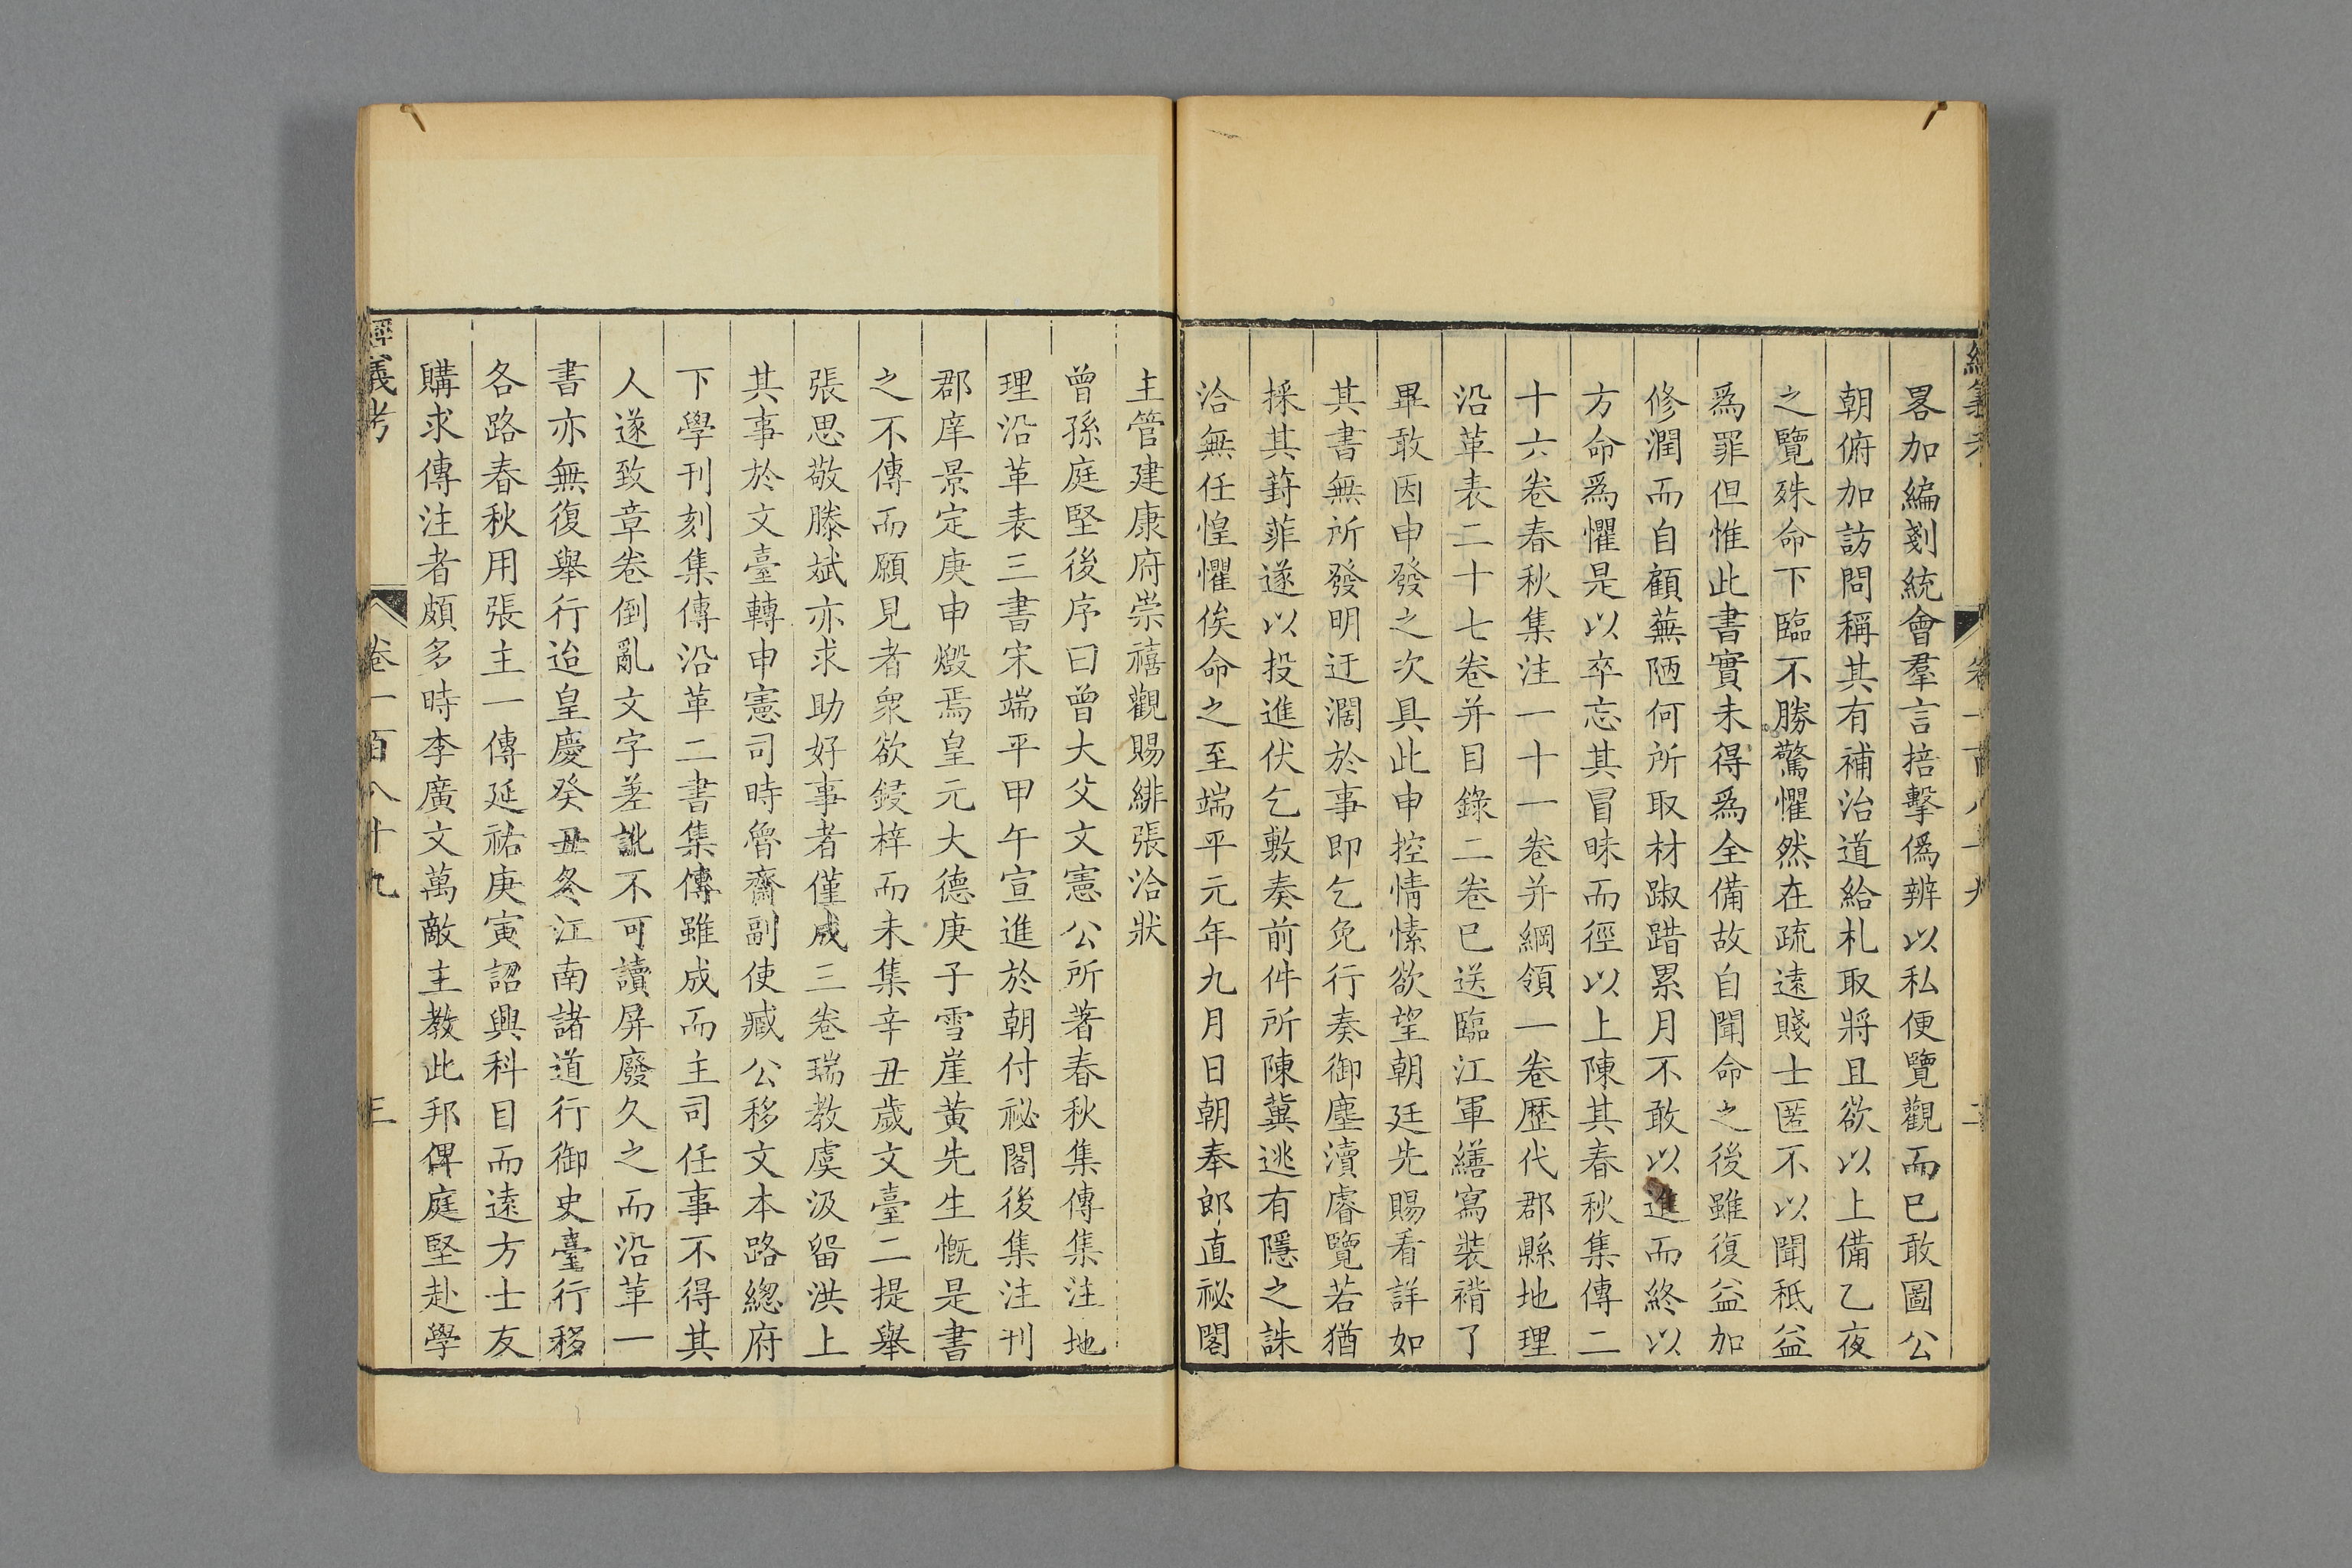 畧加編剗統會羣言掊擊僞辨以私便覽觀而已敢圖公
朝俯加訪問稱其有補治道給札取將且欲以上備乙夜
之覽殊命下臨不勝驚懼然在疏遠賤士匿不以聞秪益
爲罪但惟此書實未得爲全備故自聞命之後雖復益加
修潤而自顧蕪陋何所取材踧踖累月不敢以進而終以
方命爲懼是以卒忘其冒昧而徑以上陳其春秋集傳二
十六卷春秋集注一十一卷并綱領一卷歴代郡縣地理
沿革表二十七卷并目錄二卷巳送臨江軍繕寫裝褙了
畢敢因申發之次具此申控情愫欲望朝廷先賜看詳如
其書無所發明迂濶於事即乞免行奏御塵瀆睿覽若猶
採其葑菲遂以投進伏乞敷奏前件所陳冀逃有隱之誅
洽無任惶懼俟命之至端平元年九月日朝奉郎直祕閣
主管建康府崇禧觀賜緋張洽狀
曾孫庭堅後序曰曾大父文憲公所著春秋集傳集注地
理沿革表三書宋端平甲午宣進於朝付祕閣後集注刊
郡庠景定庚申燬焉皇元大德庚子雪崖黃先生慨是書
之不傳而願見者衆欲鋟梓而未集辛丑歲文臺二提舉
張思敬滕斌亦求助好事者僅成三卷瑞教虞汲留洪上
其事於文臺轉申憲司時魯齋副使臧公移文本路總府
下學刊刻集傳沿革二書集傳雖成而主司任事不得其
人遂致章卷倒亂文字差訛不可讀屏廢久之而沿革一
書亦無復舉行迨皇慶癸丑冬江南諸道行御史臺行移
各路春秋用張主一傳延祐庚寅詔興科目而遠方士友
購求傳注者頗多時李廣文萬敵主教此邦俾庭堅赴學
經義考 卷一百八十九 三